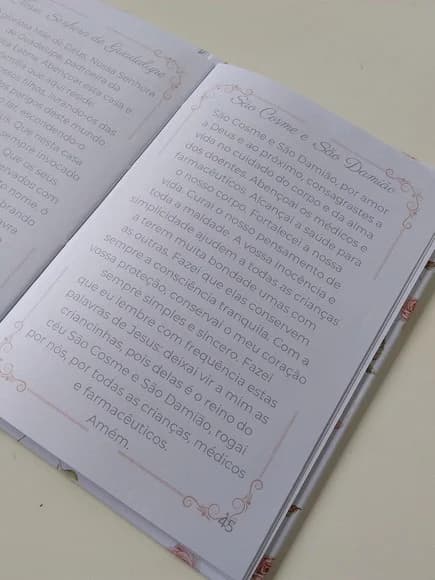 Senhora de Guadalupe
Mãe de Deus, Nossa Senhora
de Guadalupe, padroeira da
Latina. Abençoai esta casa e
que aqui reside.
filhos, livrando-os das
perigos deste mundo
escondendo o
Que nesta casa
sempre invocado
Que as seus
com
nome, ó
São Cosme e São Damião
São Cosme e São Damião, por amor
a Deus e ao próximo, consagrastes a
vida no cuidado do corpo e da alma
dos doentes. Abençoai os médicos e
farmacêuticos. Alcançai a saúde para
o nosso corpo. Fortalecei a nossa
vida. Curai o nosso pensamento de
toda a maldade. A vossa inocência e
simplicidade ajudem a todas as crianças
a terem muita bondade umas com
as outras. Fazei que elas conservem
sempre a consciência tranquila. Com a
vossa proteção, conservai o meu coração
sempre simples e sincero. Fazei
que eu lembre com frequência estas
palavras de Jesus: deixai vir a mim as
criancinhas, pois delas é o reino do
céu São Cosme e São Damião, rogai
por nós, por todas as crianças, médicos
e farmacêuticos.
Amém.
45